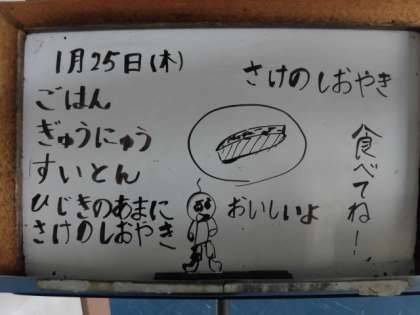 1月25日(木)
ごはん
ぎゅうにゅう
すいとん
ひじきのあまに
さけのしおやき
さけのしおやき
おいしいよ
食べてね!